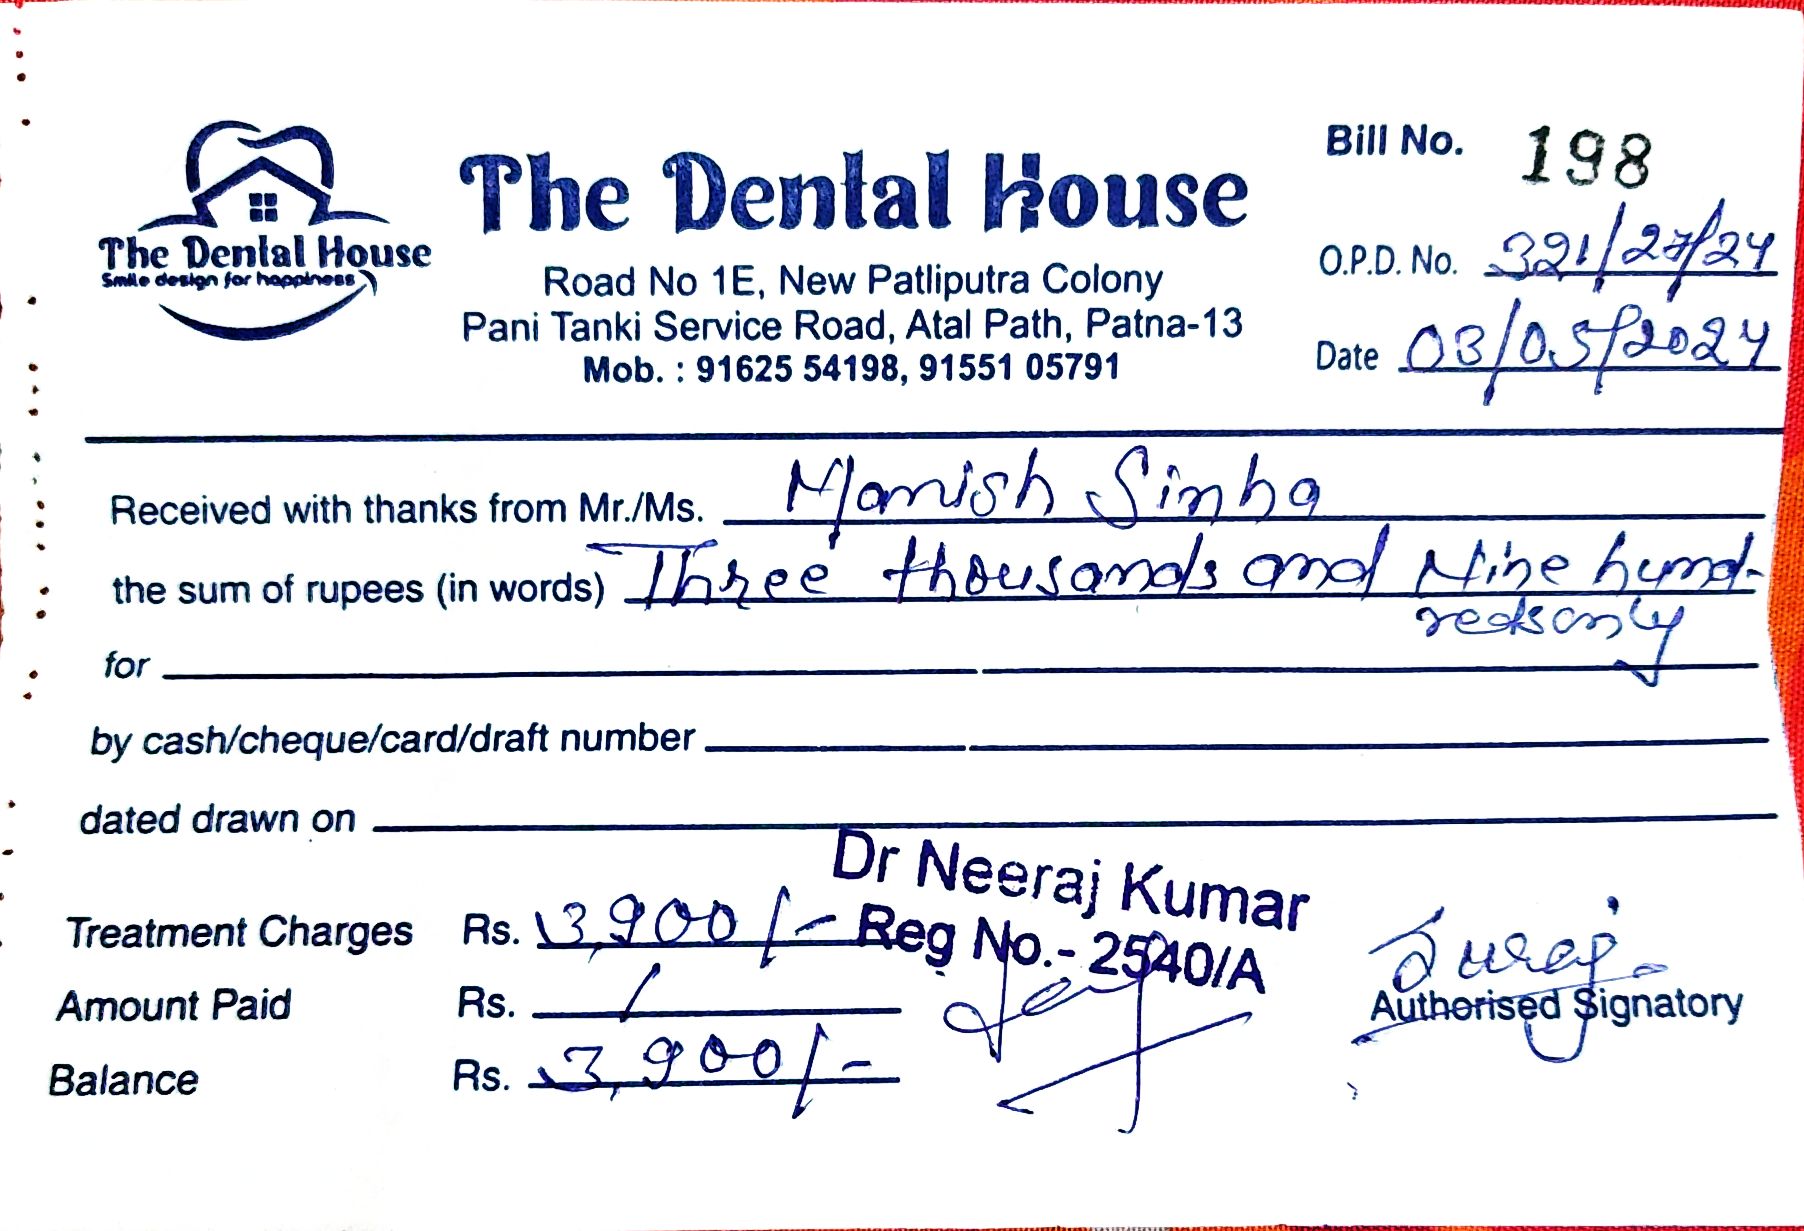 The Dental House
Smile design for happiness
The Dental House
Road No 1E, New Patliputra Colony
Pani Tanki Service Road, Atal Path, Patna-13
Mob. : 91625 54198, 91551 05791
Bill No. 198
O.P.D. No. 321/27/24
Date 03/05/2024
Received with thanks from Mr./Ms. Manish Sinha
the sum of rupees (in words) Three thousands and Nine hund-
reds only
for
by cash/cheque/card/draft number
dated drawn on
Dr Neeraj Kumar
Reg No.- 2540/A
Treatment Charges Rs. 3,900/-
Amount Paid Rs. /
Balance Rs. 3,900/-
Suraj
Authorised Signatory